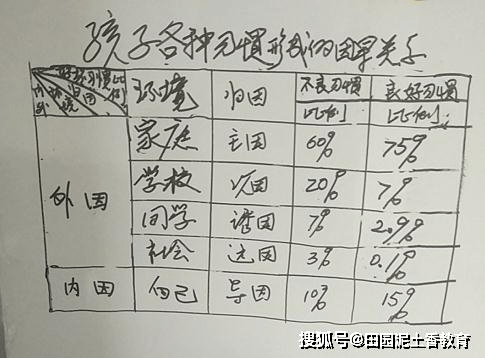 孩子各种习惯形成的因果关系
环境 归因 不良习惯比例 良好习惯比例
外因 家庭 主因 60% 75%
学校 次因 20% 7%
同学 诱因 7% 2.9%
社会 远因 3% 0.1%
内因 自己 导因 10% 15%
搜狐号@田园泥土香教育